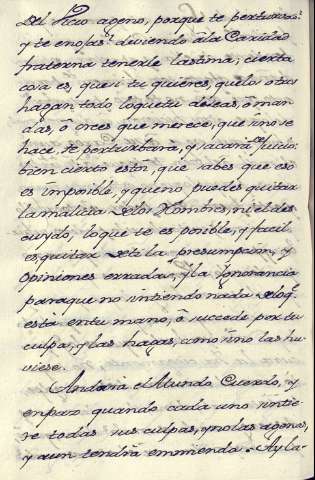 Del Vicio ageno, porque te perturbas?
y te enojas? deviendo â la Caridad
fraterna tenerle lastima; cierta
cosa es, que si tu quieres, que los otros
hagan todo loque tu deseas, ô man-
das, ô crees que merece, que sino se
hace te perturbara, y sacara de Juicio:
bien cierto estoi, que sabes que eso
es imposible, y que no puedes quitar
la malicia delos Hombres, ni el des
cuydo, lo que te es posible, y facil
es, quitar deti la presumpcion, y
Opiniones erradas, y la Ignorancia
para que no sintiendo nada delo q.e
esta en tu mano, ô succede por tu
culpa, y las hagas, como si no las hu-
viese.
Andaria el Mundo Cuerdo, y
en paz quando cada uno sintie-
se todas sus culpas, y no las agenas,
y aun tendria emmienda. Ayla-